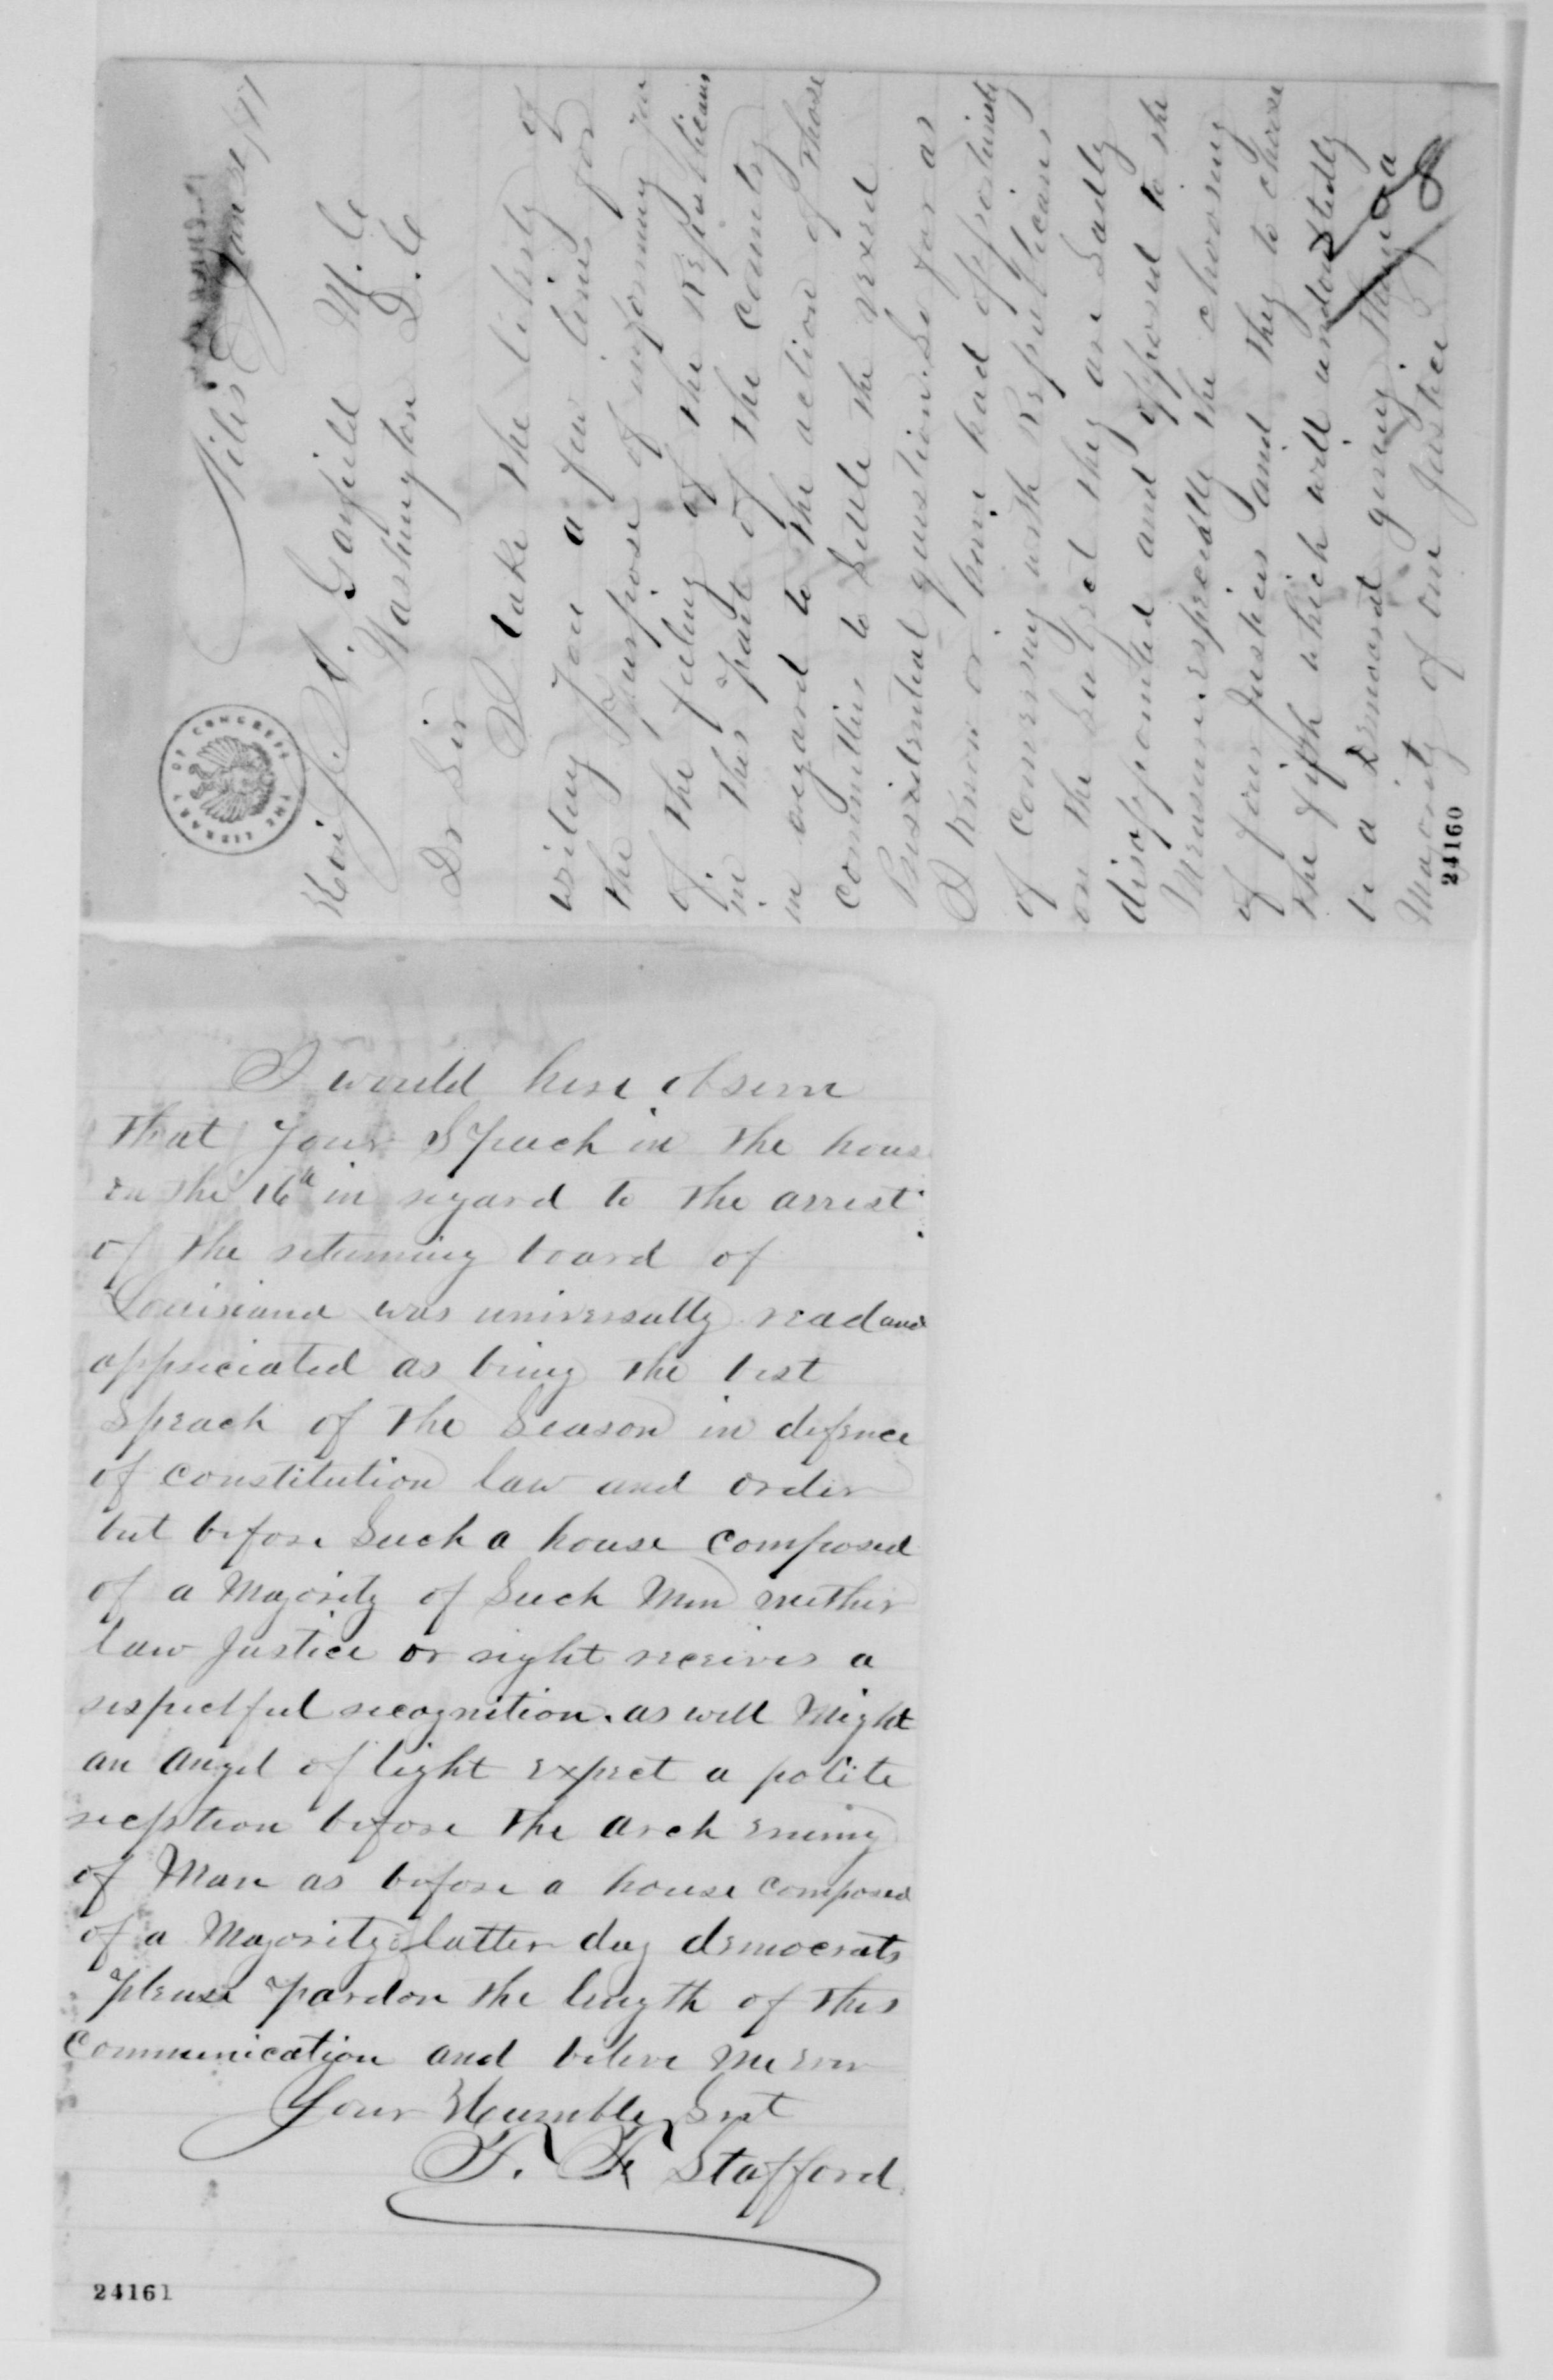 Niles Jan 31st /77
Hon J. A. Garfield M. C.
Washington D. C
Dr Sir
I take the liberty of
writing you a few lines for
the purpose of informing you
of the feeling of the Republicans
in this part of the country
in regard to the action of those
committies to settle the vexed
Presidential question. So far as
I know or have had oppertunity
of conversing with Republicans
on the subject they are sadly
disappointed and opposed to the
Measure. especially the choosing
of four Justices and they to choose
the fifth which will undoubtedly
be a Democrat giving them a
Majority of one Justice
24160
THE LIBRARY OF CONGRESS
I would here observe
that your Speech in the hous
on the 16th in regard to the arrest
of the returning board of
Louisiana was universally read and
appreciated as being the best
Speach of the Season in defence
of constitution law and order
but before Such a house composed
of a Majority of Such Men neither
law Justice or right receives a
respectful recognition. as well Might
an angel of light expect a polite
reception before the arch enemy
of Man as before a house composed
of a Majority of latter day democrats
please pardon the length of this
communication and beleve me ever
Your Humble Svt
T. F. Stafford
24161